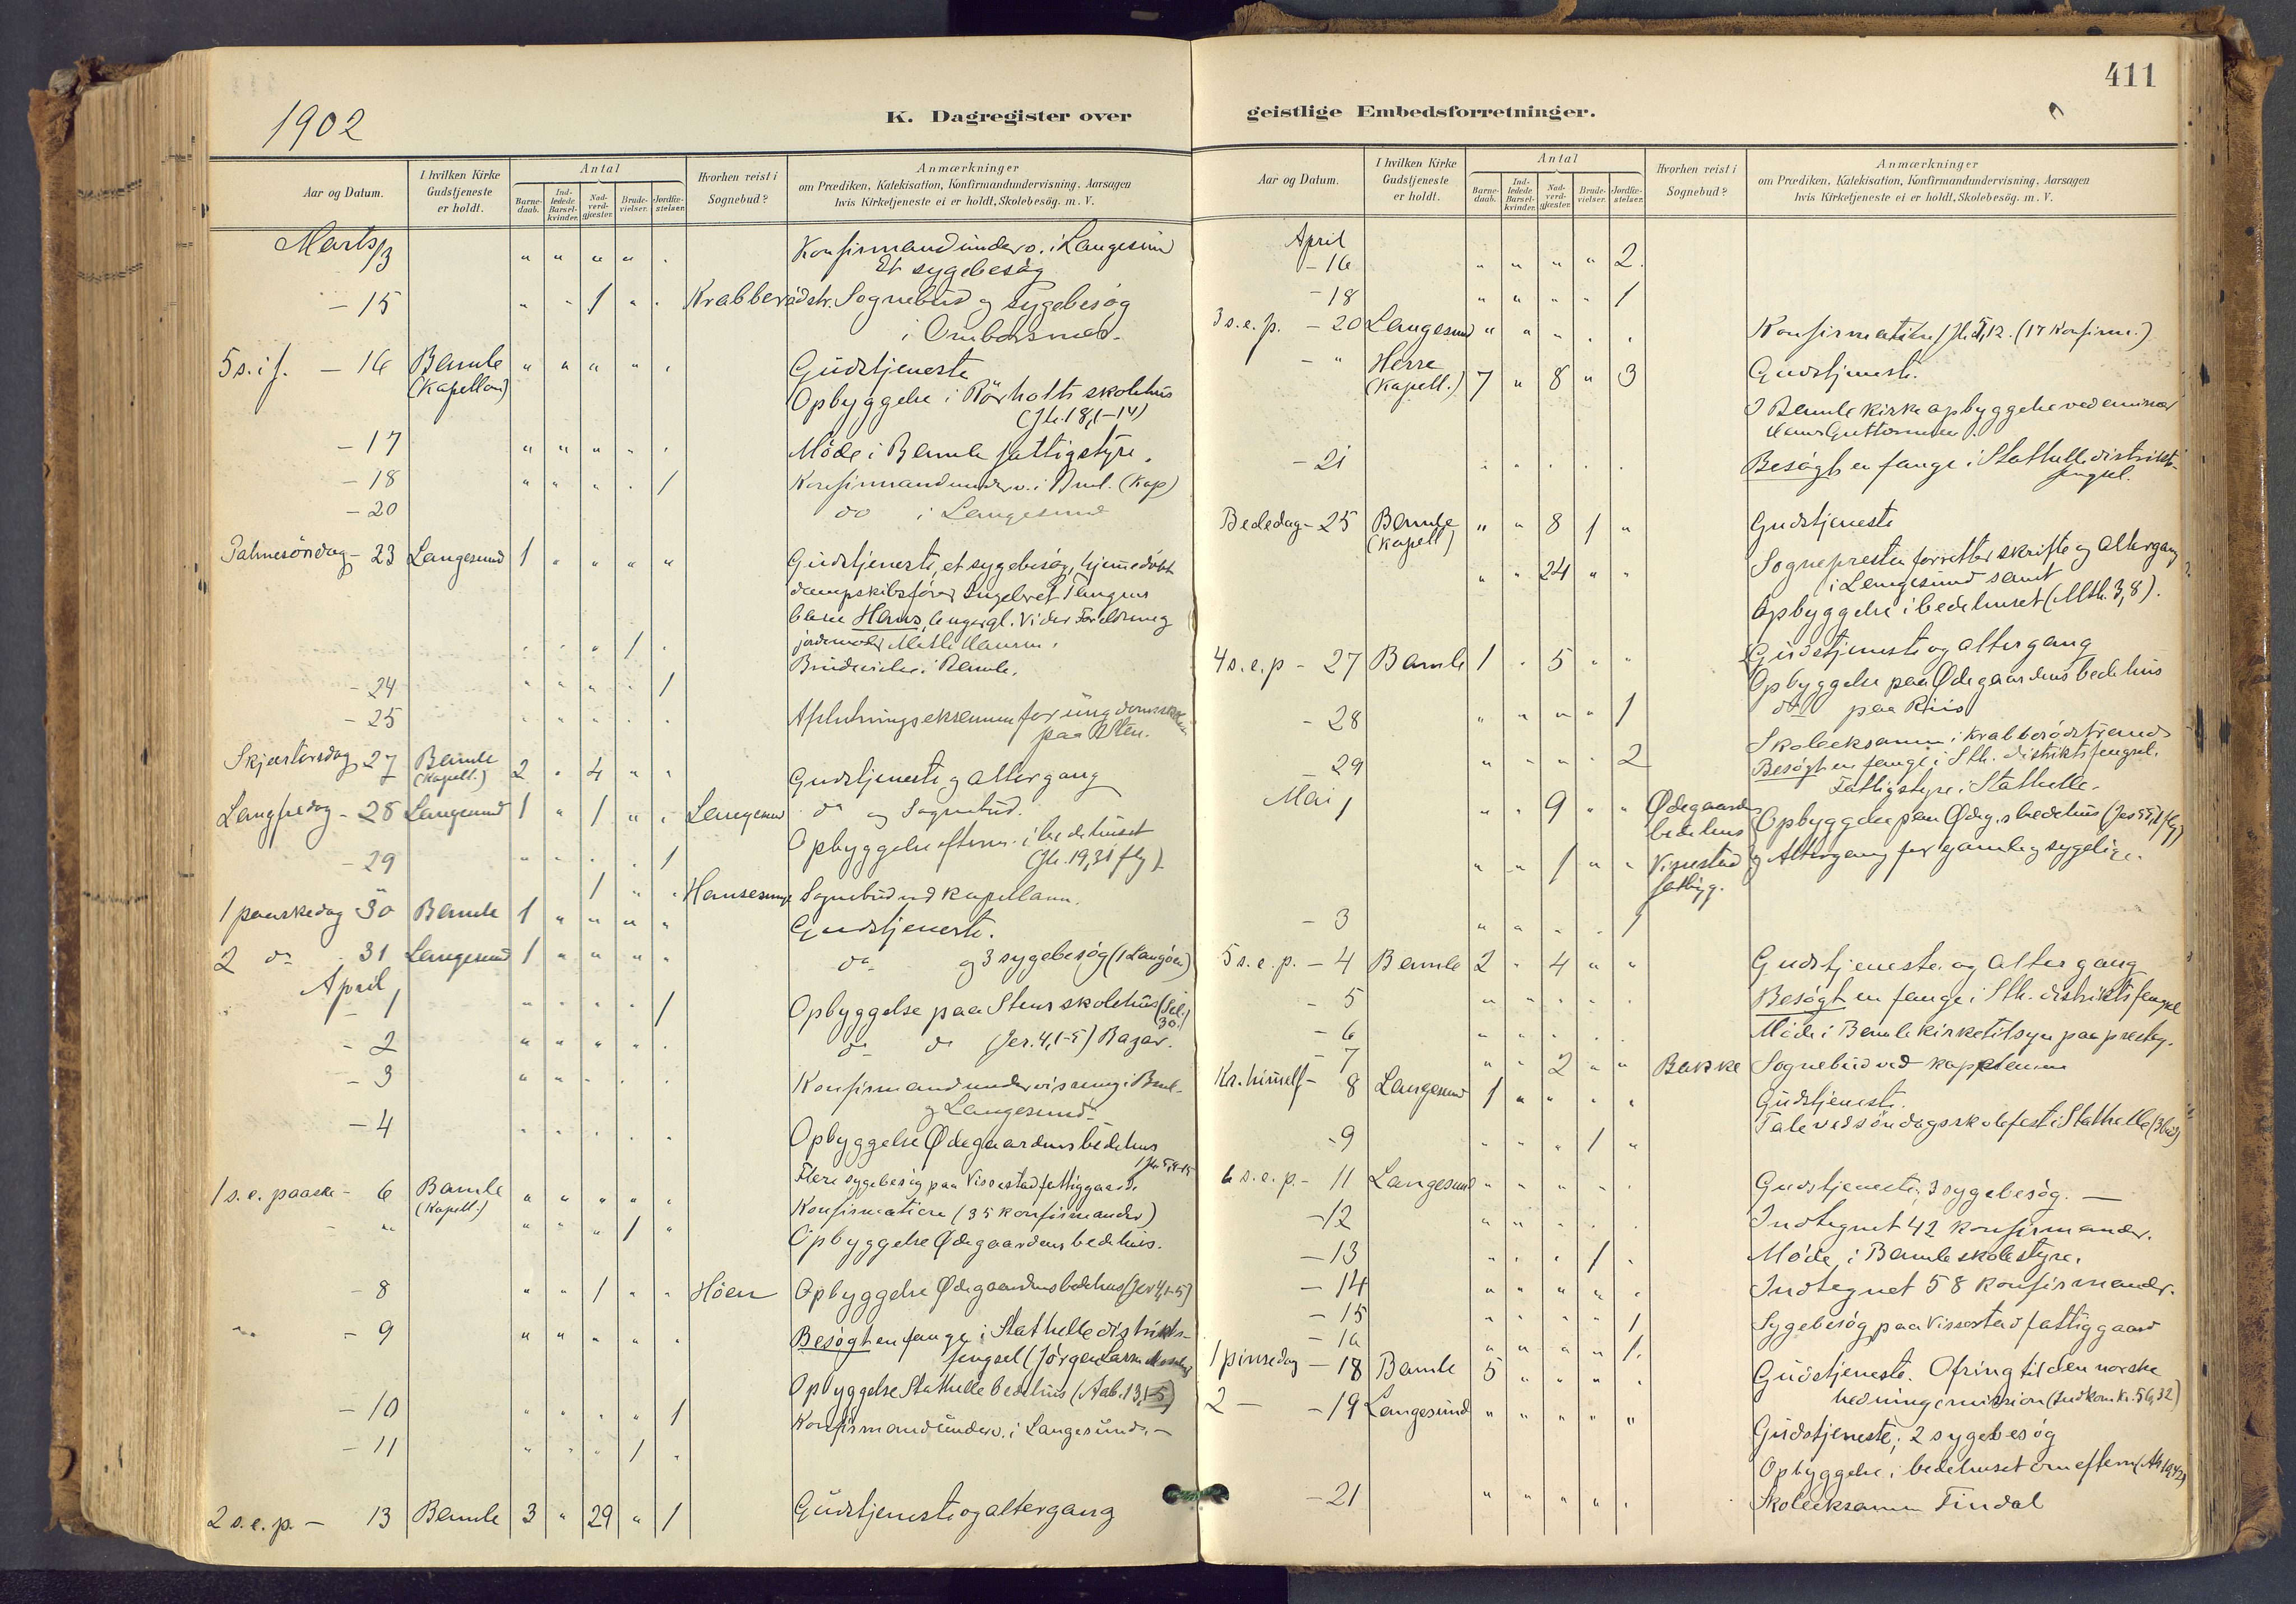 411
1902
K. Dagregister over geistlige Embedsforretninger.
Aar og Datum. I hvilken Kirke Gudstjeneste er holdt. Antal Barnedaab. Indledede Barselkvinder. Nadverdgjæster. Brudevielser. Jordfæstelser. Hvorhen reist i Sognebud? Anmærkninger om Prædiken, Katekisation, Konfirmandundervisning, Aarsagen hvis Kirketjeneste ei er holdt, Skolebesög. m. V.
Marts 13 " " " " . Konfirmandunderv. i Langesund
Et sygebesög
- 15 " " 1 " . Krabberödstr. Sognebud og sygebesög
i
5 s. i f. - 16 Bamle (Kapellan) " " " " . Gudstjeneste
Opbyggelse i Rörholts skolehus
(Jh. 18,1-14)
- 17 " " " . . Möde i Bamle fattigstyre.
- 18 " " " . 1 Konfirmandunderv. i Bml. (Kap)
- 20 do i Langesund
Palmesöndag - 23 Langesund 1 " " " " Gudstjeneste, et sygebesög, hjemmedöbt
dampskibsförer Ingebret Tangens
barn Hans,
jordemoder Mathe Hansen.
. . " 1 . Brudevielse i Bamle.
- 24 " " " . 1
- 25 " " " . . Afslutningseksamen for ungdomsskolen
paa
Skjærtorsdag 27 Bamle (Kapell.) 2 . 4 " " Gudstjeneste og altergang
Langfredag - 28 Langesund 1 " 1 " . Langesund do og Sognebud.
Opbyggelse efterm. i bedehuset
(Jh. 19,31 flg)
- 29 " " . . 1
1 " . Sognebud ved kapellanen.
1 paaskedag 30 Bamle 1 " " " " Gudstjeneste.
2 do 31 Langesund 1 " " " " do og 3 sygebesög (1 Langöen)
April
- 1 " " . . 1 Opbyggelse paa Stens skolehus
- 2 " " " " . do do (Jer. 4,1-5) Bazar.
- 3 " " . . . Konfirmandundervisning i Bml.
og Langesund
- 4 " . . . . Opbyggelse Ødegaardens bedehus
Flere sygebesög paa Vissestad fattiggaard.
1 s. e. paaske - 6 Bamle (Kapell.) " " " " . Konfirmation (35 konfirmander)
- " " " " 1 " Opbyggelse Ødegaardens bedehus.
- 8 " " 1 " . Höen Opbyggelse Ødegaardens bedehus (Jer 4,1-5)
- 9 " " " " . Besögt en fange i Stathelle distrikts-
fengsel (Jörgen Larsen
Opbyggelse Stathelle bedehus (Aab. 13,1-5)
- 10 " . . " 1 Konfirmandunderv. i Langesund. -
- 11 " . " 1 .
2 s. e. p. - 13 Bamle 3 " 29 " 1 Gudstjeneste og altergang
Aar og Datum. I hvilken Kirke Gudstjeneste er holdt. Antal Barnedaab. Indledede Barselkvinder. Nadverdgjæster. Brudevielser. Jordfæstelser. Hvorhen reist i Sognebud? Anmærkninger om Prædiken, Katekisation, Konfirmandundervisning, Aarsagen hvis Kirketjeneste ei er holdt, Skolebesög. m. V.
April
- 16 " " " " 2.
- 18 " " " " 1
3 s. e. p. - 20 Langesund " " " . . Konfirmation (17 konfirm.)
- " Herre (Kapell.) 7 " 8 " 3 Gudstjeneste.
I Bamle kirke opbyggelse ved emissær
Hans Guttormsen.
- 21 " . . . . Besögt en fange i Stathelle distrikts-
fengsel.
Bededag - 25 Bamle (Kapell) " " 8 1 " Gudstjeneste
" " 24 " " Sognepresten forretter skrifte og altergang
i Langesund samt
Opbyggelse i bedehuset (Mth. 3,8).
4 s. e. p - 27 Bamle 1 . 5 " " Gudstjeneste og altergang
Opbyggelse paa Ødegaardens bedehus
- 28 " " " " 1 do paa Riis
Skoleeksamen i Krabberödstrand
- 29 " " " . 2 Besögt en fange i Sth. distriktsfengsel.
Fattigstyre i Stathelle.
Mai 1 " . 9 " " Ødegaardens bedehus Opbyggelse paa Ødeg.s bedehus
" " 1 " " fattigg. og Altergang for gamle og sygelige.
- 3 " " . . 1
5 s. e. p. - 4 Bamle 2 . 4 " " Gudstjeneste og altergang
- 5 " " " . . Besögt en fange i Sth. distriktsfengsel
- 6 " . . . . Möde i Bamle kirketilsyn paa presteg.
- 7 " . 2 " " Bakke Sognebud ved kapellanen
Kr. himmelf - 8 Langesund 1 " " " " Gudstjeneste.
Tale ved söndagsskolefest i Stathelle
- 9 " . . 1 "
6 s. e. p. - 11 Langesund " " " " . Gudstjeneste, 3 sygebesög. -
- 12 " " . . . Indtegnet 42 konfirmander.
- 13 " . . 1 . Möde i Bamle skolestyre.
- 14 " " " " . Indtegnet 58 konfirmander.
- 15 " . . . 1 Sygebesög paa Vissestad fattiggaard
- 16 " " " " 1.
1 pinsedag - 18 Bamle 5 " " " . Gudstjeneste. Ofring til den norske
hedningemission (Indkom kr. 56,32)
2 - - 19 Langesund " " " " " Gudstjeneste; 2 sygebesög
Opbyggelse i bedehuset om efterm
- 21 " " " " . Skoleeksamen Findal